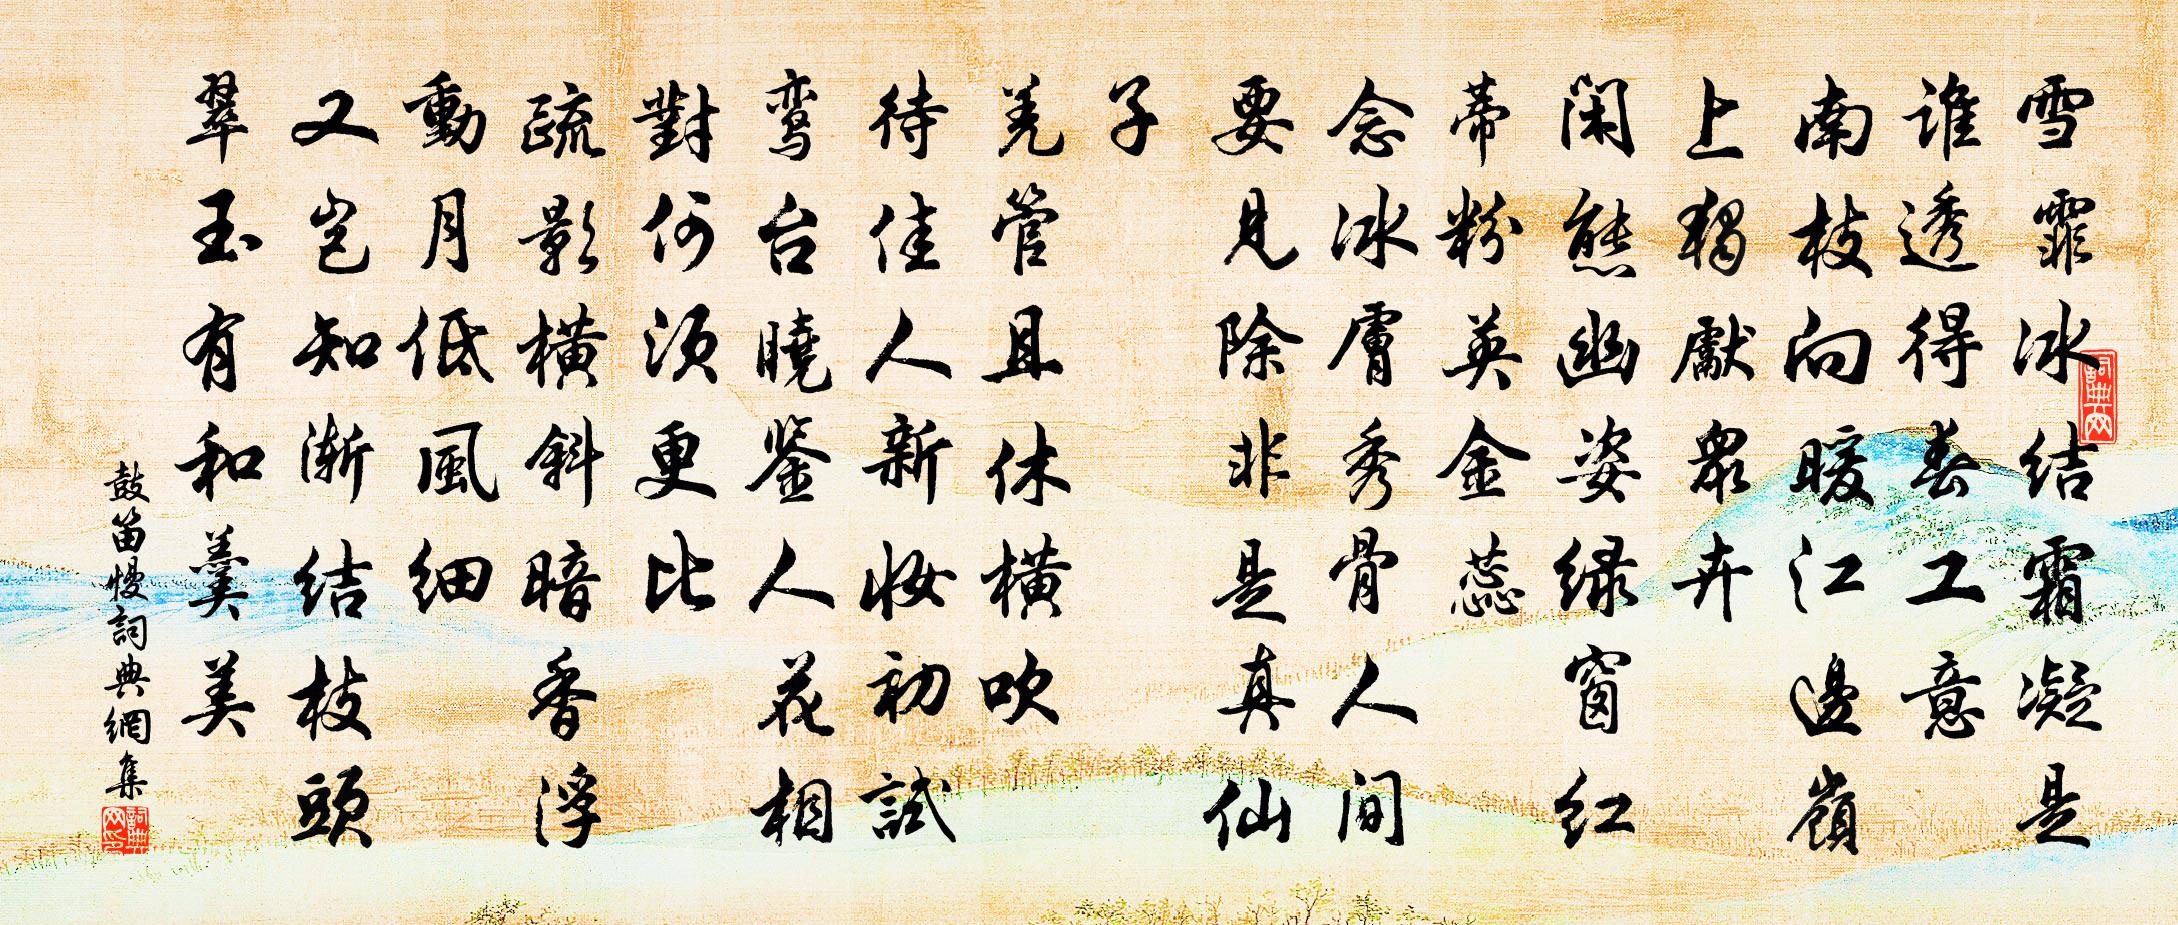 雪霏冰结霜凝是
谁透得春工意
南枝向暖江邊嶺
上獨獻眾卉
闲態幽姿绿窗红
蒂粉英金蕊
念冰膚秀骨人间
要見除非是真仙
子
羌管且休横吹
待佳人新妆初試
鸾台曉鉴人花相
對何须更比
疏影横斜暗香浮
動月低風细
又岂知渐结枝頭
翠玉有和羹美
鼓笛慢詞典網集
詞典网
詞典网印